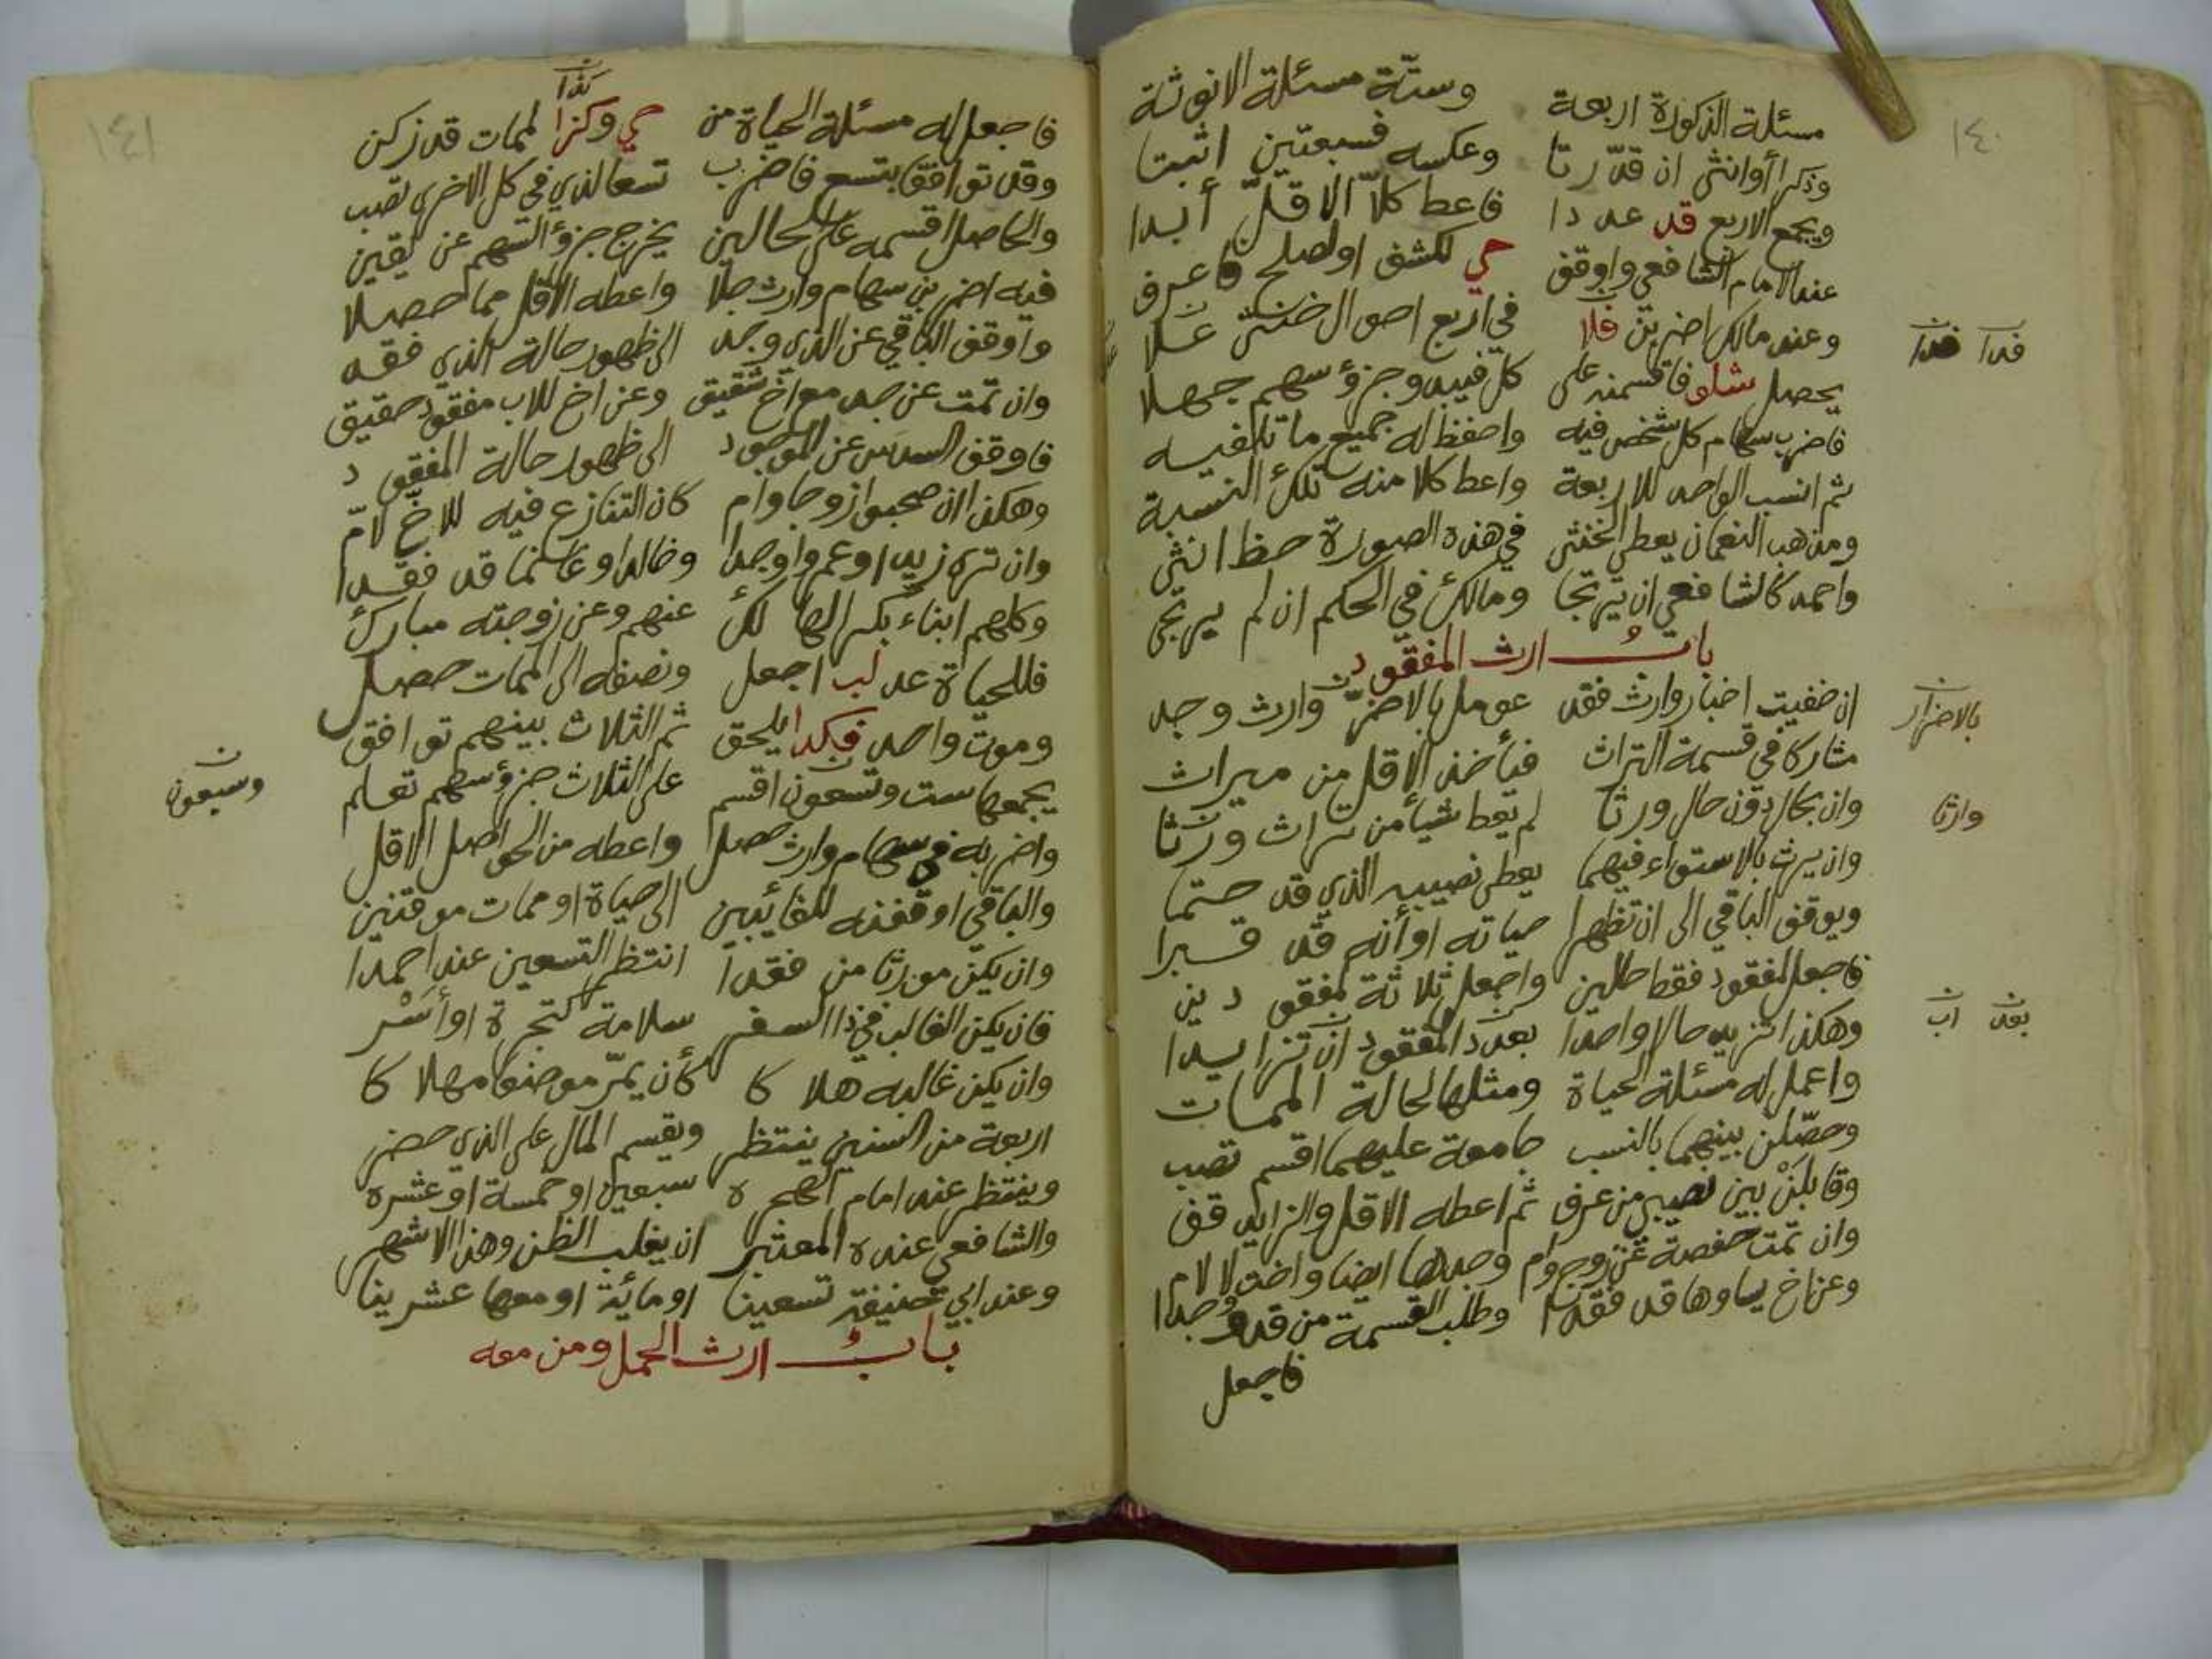 ١٤٠
مسئلة الذكورة اربعة وستة مسئلة الانوثة
وذكرا أوانثى ان قدّرتا وعكسه فسبعتين اثبتا
ويجمع الاربع قد عددا فاعط كلاّ الاقلّ أبدا
عند الامام الشافعي واوقف حي لكشف اولصلح فاعرف
وعند مالك اضربن فلا في اربع احوال خنثى علا
فدا فدا
يحصل شلو فاقسمنه على كل ففيه وجزؤ سهم جهلا
فاضرب سهام كل شخص فيه واحفظ له جميع ما تلفيه
ثم انسب الواحد للاربعة واعط كلا منه تلك النسبة
ومذهب النعمان يعطى الخنثى في هذه الصورة حظ انثى
واحمد كالشافعي ان يرتجا ومالك في الحكم ان لم يرتجى
باب ارث المفقود
ان خفيت اخبار وارث فقد عومل بالاضرّ وارث وجد
بالاضرار
مشاركا في قسمة التراث فيأخذ الاقل من ميراث
وان بحال دون حال ورثا لم يعط شيأ من تراث ورثا
وارثا
وان يرث بالاستواء فيهما يعطى نصيبه الذي قد حتما
ويوقف الباقي الى ان تظهرا حياته او أنه قد قبرا
فاجعل لمفقود فقط حالين واجعل ثلاثة لمفقودين
وهكذا تزيد حالا واحدا بعدد المفقود ان تزايدا
بعد اب
واعمل له مسئلة الحياة ومثلها لحالة الممات
وحصّلن بينهما بالنسب جامعة عليهما اقسم تصب
وقابلَنْ بين نصيبي من عرف ثم اعطه الاقل والزايد قف
وان تمت حفصة عن زوج وام وجدها ايضا واخت لا لام
وعن اخ ساوها قد فقدا وطلب القسمة من قد وجدا
فاجعل
١٤١
كذا
فاجعل له مسئلة الحياة من حي وكزا لممات قد زكن
وقد توافقا بتسع فاضرب تسعا لذي في كل الاخرى تصب
والحاصل اقسمه على الحالين يخرج جزؤ السهم عن يقين
فيه اضربن سهام وارث جلا واعطه الاقل مما حصلا
واوقف الباقي عن الذي وجد الى ظهور حالة الذي فقد
وان تمت عن جد مع اخ شقيق وعن اخ للاب مفقود حقيق
فاوقف السدس عن الموجود الى ظهور حالة المفقود
وهكذا ان صحبوا زوجا وام كان التنازع فيه للاخ لامّ
وان ترى زيدا وعمروا وجدا وخالدا وغانما قد فقدا
وكلهم ابناء بكر الهالك عنهم وعن زوجته مبارك
فللحياة عد لب اجعل ونصفه الى الممات حصل
وموت واحد فكدا يلحق ثم الثلاث بينهم توافق
يجمعها ست وتسعون اقسم على الثلاث جزؤ سهم تعلم
وسبعون
واضربه في سهام وارث حصل واعطه من الحواصل الاقل
والباقي اوقفنه للغائبين الى حياة او ممات موقنين
وان يكن مورثا من فقدا انتظر التسعين عند احمدا
فان يكن الغالب في ذا السفر سلامة كتجرة اوأسْر
وان يكن غالبه هلاكا كأن يمرّ موضعا مهلاكا
اربعة من السنين ينتظر ويقسم المال على الذي حضر
وينتظر عند امام الهجرة سبعين او خمسة او عشرة
والشافعي عنده المعتبر ان يغلب الظن وهذا الاشهر
وعند ابي حنيفة تسعينا او مائة او معها عشرينا
باب ارث الحمل ومن معه